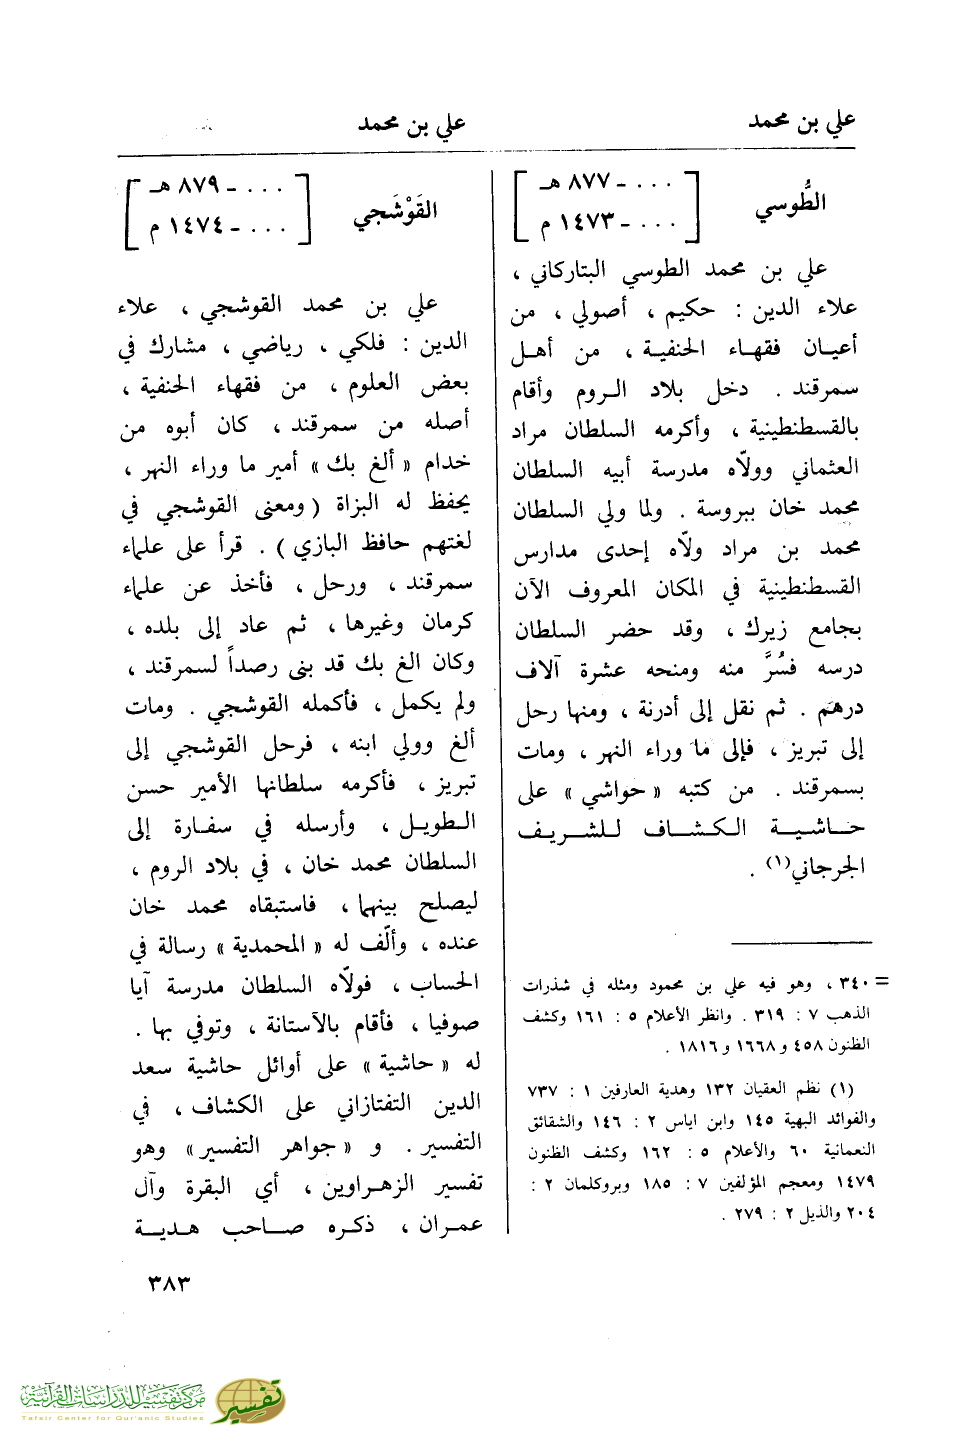 علي بن محمد
علي بن محمد
الطُّوسي
[ ... - ٨٧٧ هـ
... - ١٤٧٣ م ]
علي بن محمد الطوسي البتاركاني ،
علاء الدين : حكيم ، أصولي ، من
أعيان فقهاء الحنفية ، من أهل
سمرقند . دخل بلاد الروم وأقام
بالقسطنطينية ، وأكرمه السلطان مراد
العثماني وولّاه مدرسة أبيه السلطان
محمد خان ببروسة . ولما ولي السلطان
محمد بن مراد ولّاه إحدى مدارس
القسطنطينية في المكان المعروف الآن
بجامع زيرك ، وقد حضر السلطان
درسه فسُرَّ منه ومنحه عشرة آلاف
درهم . ثم نقل إلى أدرنة ، ومنها رحل
إلى تبريز ، فإلى ما وراء النهر ، ومات
بسمرقند . من كتبه « حواشي » على
حاشية الكشاف للشريف
الجرجاني(١) .
= ٣٤٠ ، وهو فيه علي بن محمود ومثله في شذرات
الذهب ٧ : ٣١٩ . وانظر الأعلام ٥ : ١٦١ وكشف
الظنون ٤٥٨ و ١٦٦٨ و ١٨١٦ .
(١) نظم العقيان ١٣٢ وهدية العارفين ١ : ٧٣٧
والفوائد البهية ١٤٥ وابن اياس ٢ : ١٤٦ والشقائق
النعمانية ٦٠ والأعلام ٥ : ١٦٢ وكشف الظنون
١٤٧٩ ومعجم المؤلفين ٧ : ١٨٥ وبروكلمان ٢ :
٢٠٤ والذيل ٢ : ٢٧٩ .
القَوْشَجي
[ ... - ٨٧٩ هـ
... - ١٤٧٤ م ]
علي بن محمد القوشجي ، علاء
الدين : فلكي ، رياضي ، مشارك في
بعض العلوم ، من فقهاء الحنفية ،
أصله من سمرقند ، كان أبوه من
خدام « ألغ بك » أمير ما وراء النهر ،
يحفظ له البزاة ( ومعنى القوشجي في
لغتهم حافظ البازي ) . قرأ على علماء
سمرقند ، ورحل ، فأخذ عن علماء
كرمان وغيرها ، ثم عاد إلى بلده ،
وكان الغ بك قد بنى رصداً لسمرقند ،
ولم يكمل ، فأكمله القوشجي . ومات
ألغ وولي ابنه ، فرحل القوشجي إلى
تبريز ، فأكرمه سلطانها الأمير حسن
الطويل ، وأرسله في سفارة إلى
السلطان محمد خان ، في بلاد الروم ،
ليصلح بينهما ، فاستبقاه محمد خان
عنده ، وألّف له « المحمدية » رسالة في
الحساب ، فولّاه السلطان مدرسة آيا
صوفيا ، فأقام بالآستانة ، وتوفي بها .
له « حاشية » على أوائل حاشية سعد
الدين التفتازاني على الكشاف ، في
التفسير . و « جواهر التفسير » وهو
تفسير الزهراوين ، أي البقرة وآل
عمران ، ذكره صاحب هدية
٣٨٣
مركز تفسير للدراسات القرآنية
Tafsir Center for Qur'anic Studies
تفسير